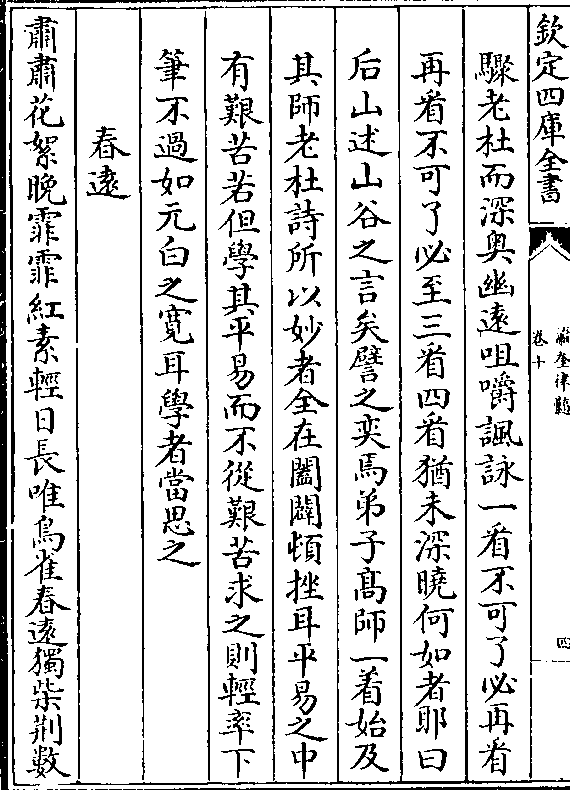 欽定四庫全書
瀛奎律髓
卷十
四
驟老杜而深奧幽遠咀嚼諷詠一看不可了必再看
再看不可了必至三看四看猶未深曉何如者耶曰
后山述山谷之言矣譬之奕焉弟子高師一着始及
其師老杜詩所以妙者全在闔闢頓挫耳平易之中
有艱苦若但學其平易而不從艱苦求之則輕率下
筆不過如元白之寛耳學者當思之
春遠
肅肅花絮晚霏霏紅素輕日長唯鳥雀春遠獨柴荆數